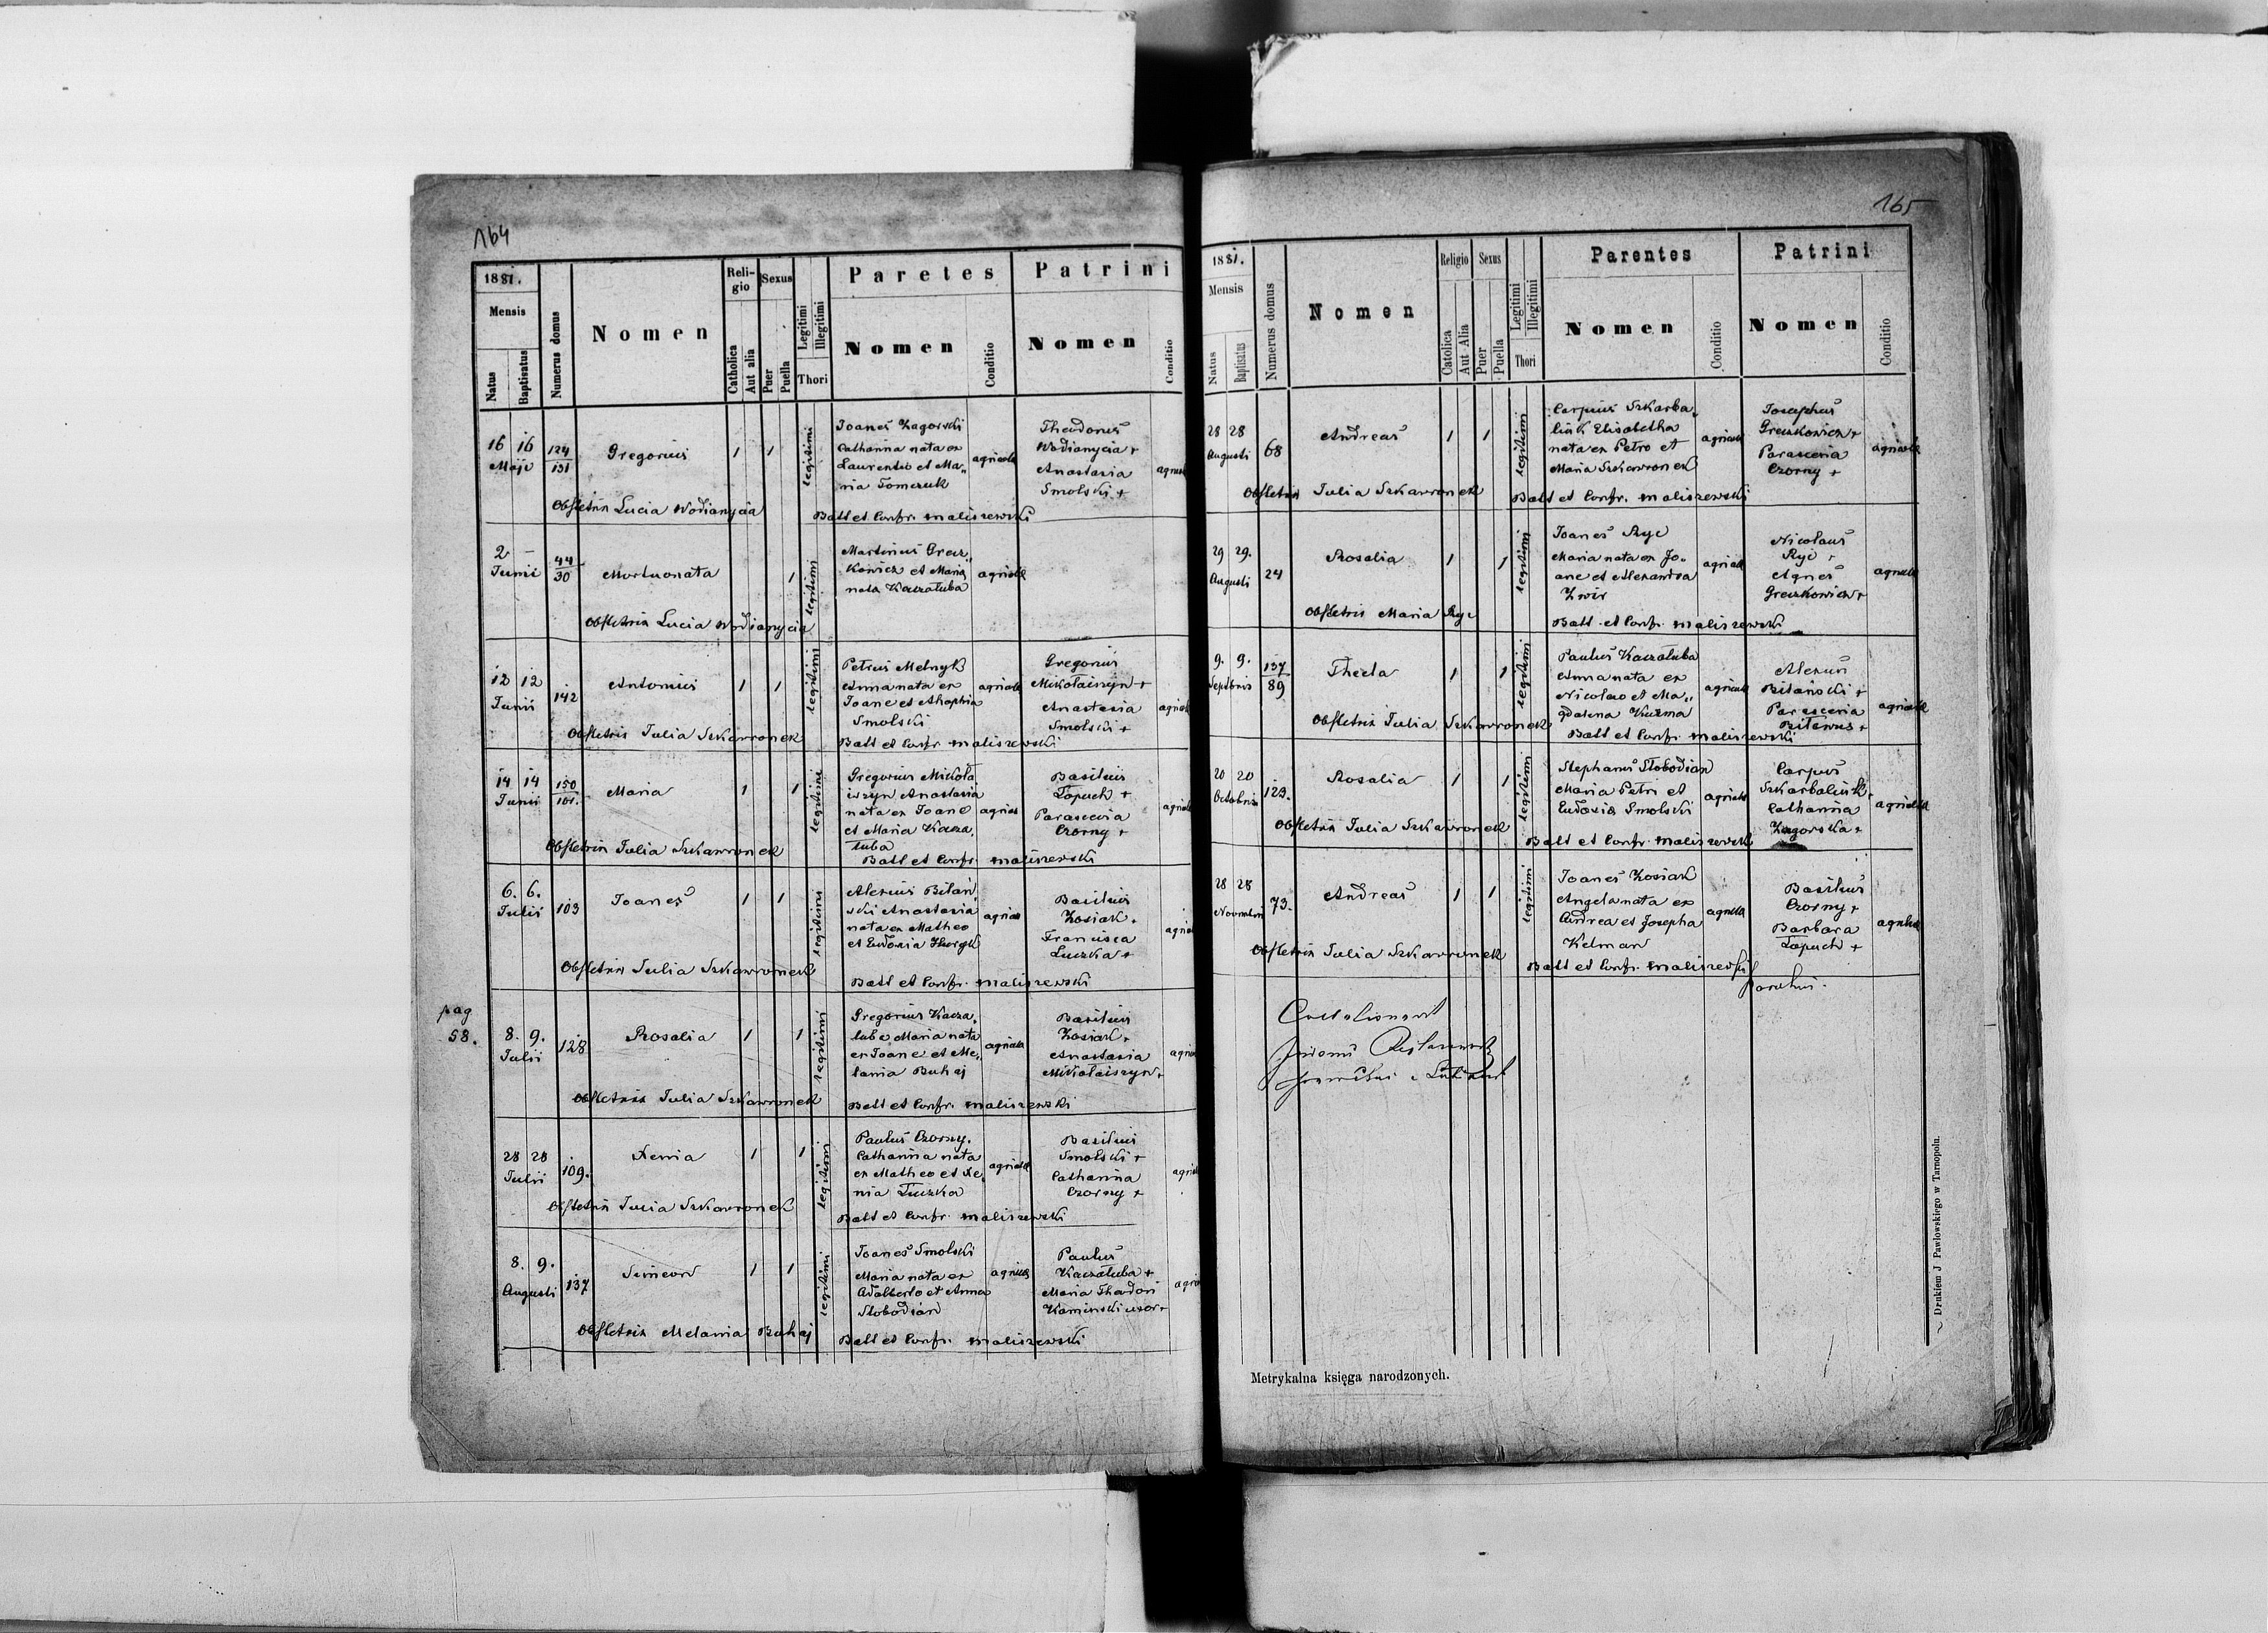 164
1881.
Mensis
Natus
Baptisatus
Numerus domus
Nomen
Reli-
gio
Catholica
Aut alia
Sexus
Puer
Puella
Legitimi
Illegitimi
Thori
Paretes
Nomen
Conditio
Patrini
Nomen
Conditio
16 16
Maji
124
131
Gregorius
1 1
legitimi
Joanes Zagorski
Catharina nata ex
Laurentio et Ma„
ria Tomczuk
agricolæ
Theodorus
Wodianycia +
Anastasia
Smolski +
Obstetrix Lucia Wodianycia
Batt et Confr. Maliszewski
2 –
Junii
44
30
Mortuonata
1
legitimi
Martinus Gracz„
kowicz et Maria
nata Kaczałuba
agricolæ
Obstetrix Lucia Wodianycia
12 12
Junii
142
Antonius
1 1
legitimi
Petrus Melnyk
Anna nata ex
Joane et
Smolski
agricolæ
Gregorius
Mikołaiszyn +
Anastasia
Smolski +
Obstetrix Julia Szkawronek
Batt et Confr Maliszewski
14 14
Junii
150
101.
Maria
1 1
legitimi
Gregorius Mikoła
iszyn Anastasia
nata ex Joane
et Maria Kacza„
łuba
Basilius
Łopuch +
Parascevia
Czorny +
Obstetrix Julia Szkawronek
Batt et Confr. Maliszewski
6. 6.
Julii
103
Joanes
1 1
legitimi
Alexius Bilan„
ski Anastasia
nata ex Matheo
et Eudoxia
Basilius
Kosiak +
Francisca
Luczka +
Obstetrix Julia Szkawronek
Batt et Confr. Maliszewski
pag
58.
8. 9.
Julii
128
Rosalia
1 1
legitimi
Gregorius Kacza„
łuba Maria nata
ex Joane et Me„
lania Buhaj
agricolæ
Basilius
Kosiak +
Anastasia
Mikołaiszyn +
Obstetrix Julia Szkawronek
Batt et Confr. Maliszewski
28 28
Julii
109.
Xenia
1 1
legitimi
Paulus Czorny.
Catharina nata
ex Matheo et Xe„
nia Łuczka
agricolæ
Basilius
Smolski +
Catharina
Czorny +
Obstetrix Julia Szkawronek
Batt et Confr. Maliszewski
8. 9.
Augusti
137
Simeon
1 1
legitimi
Joanes Smolski
Maria nata ex
Adalberto et Anna
Slobodian
Paulus
Kaczałuba +
Maria Theodori
Kaminski uxor +
Obstetrix Melania Buhaj
Batt et Confr. Maliszewski
165
1881.
Mensis
Natus
Baptisatus
Numerus domus
Nomen
Religio
Catolica
Aut Alia
Sexus
Puer
Puella
Legitimi
Illegitimi
Thori
Parentes
Nomen
Conditio
Patrini
Nomen
Conditio
28 28
Augusti
68
Andreas
1 1
legitimi
Carpius Szkarba„
liuk Elisabetha
nata ex Petro et
Maria Szkawronek
agricolæ
Josephus
Greczkowicz +
Parascevia
Czorny +
agricolæ
Obstetrix Julia Szkawronek
Batt et Confr. Maliszewski
29 29.
Augusti
24
Rosalia
1 1
legitimi
Joanes Ryc
Maria nata ex Jo„
ane et Alexandra
Zwir
agricolæ
Nicolaus
Ryc +
Agnes
Greczkowicz +
agricolæ
Obstetrix Maria Ryc
Batt. et Confr. Maliszewski
9. 9.
Septbris
137
89
Thecla
1 1
legitimi
Paulus Kaczałuba
Anna nata ex
Nicolao et Ma„
gdalena Kuzma
agricolæ
Alexius
Bilański +
Parascevia
agricolæ
Obstetrix Julia Szkawronek
Batt et Confr. Maliszewski
20 20
Octobris
123.
Rosalia
1 1
legitimi
Stephanus Slobodian
Maria Petri et
Eudoxia Smolski
agricolæ
Carpus
Szkarbaliuk +
Catharina
Zagorska +
agricolæ
Obstetrix Julia Szkawronek
Batt et Confr. Maliszewski
28 28
Novembri
73.
Andreas
1 1
legitimi
Joanes Kosiak
Angela nata ex
Andrea et Josepha
Kelman
agricolæ
Basilius
Czorny +
Barbara
Łopuch +
agricolæ
Obstetrix Julia Szkawronek
Batt et Confr. Maliszewski
parochus.
Metrykalna księga narodzonych.
Drukiem J Pawłowskiego w Tarnopolu.